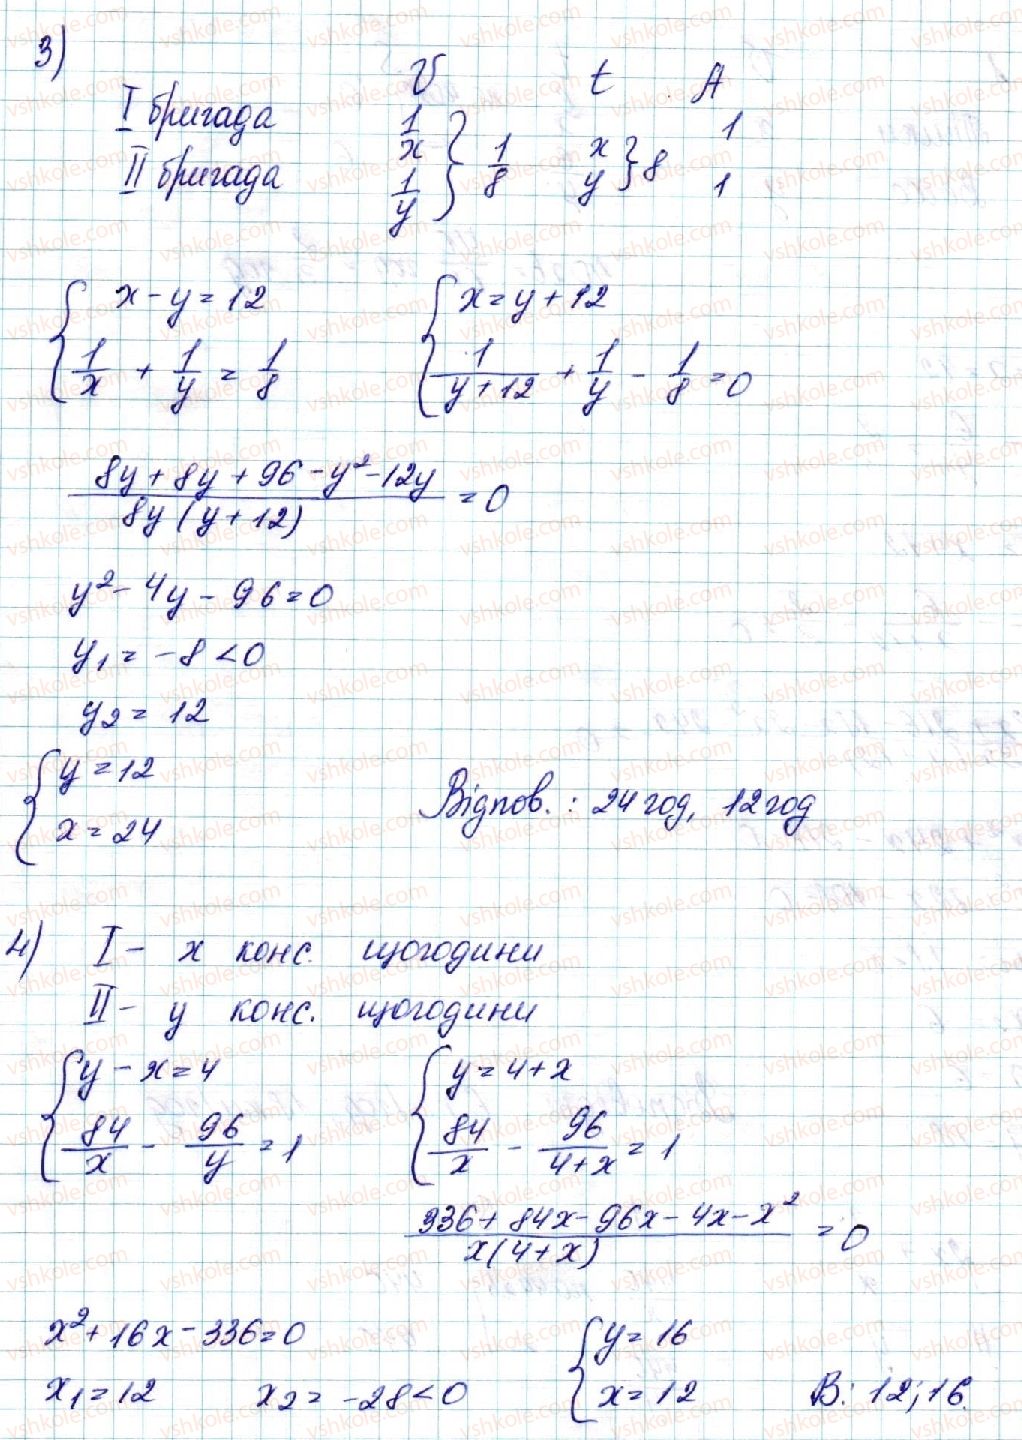 3)
V t A
I бригада 1/x x 1
} 1/8 } 8
II бригада 1/y y 1
{ x - y = 12 { x = y + 12
1/x + 1/y = 1/8 1/(y + 12) + 1/y - 1/8 = 0
(8y + 8y + 96 - y² - 12y)/(8y(y + 12)) = 0
y² - 4y - 96 = 0
y₁ = -8 < 0
y₂ = 12
{ y = 12
x = 24
Відпов. : 24 год, 12 год
4) I - x конс. щогодини
II - y конс. щогодини
{ y - x = 4 { y = 4 + x
84/x - 96/y = 1 84/x - 96/(4 + x) = 1
(336 + 84x - 96x - 4x - x²)/(x(4 + x)) = 0
x² + 16x - 336 = 0 { y = 16
x₁ = 12 x₂ = -28 < 0 x = 12 В: 12; 16.